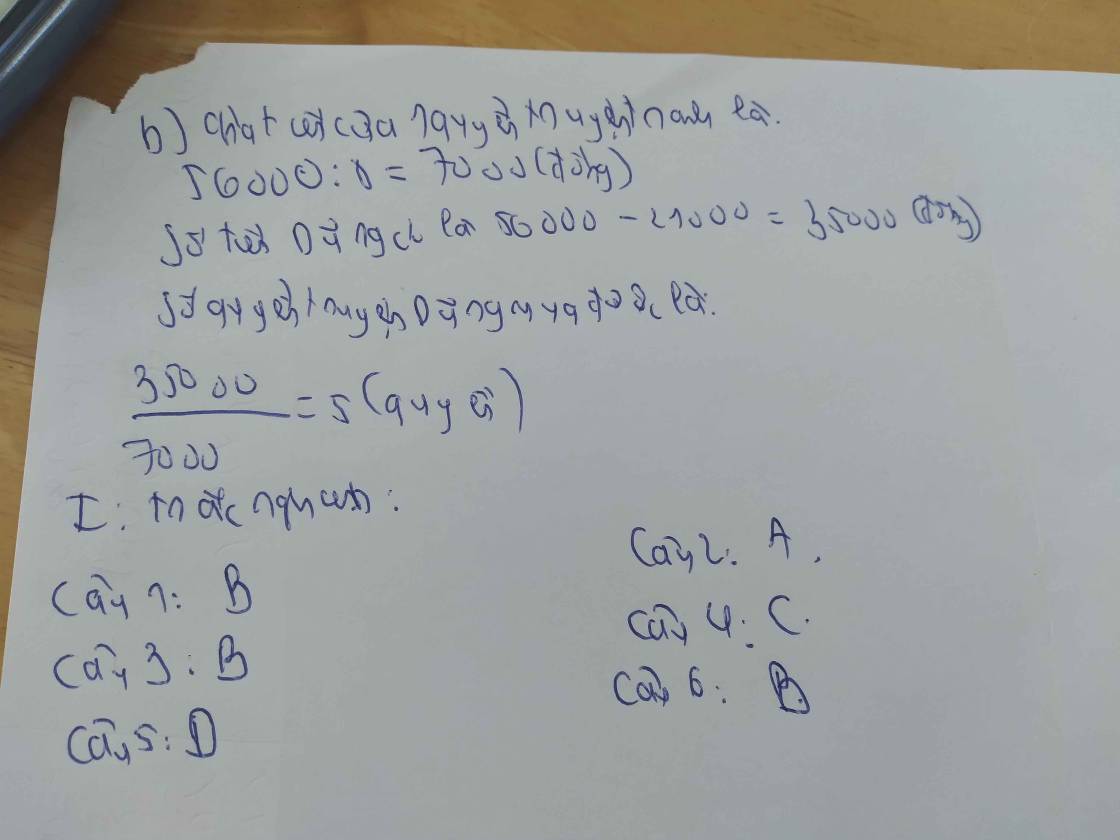 b) Giá tiền của 1 quyển truyện tranh là:
56000 : 8 = 7000 (đồng)
Số tiền Dũng có là 56000 - 21000 = 35000 (đồng)
Số quyển truyện Dũng mua được là:
35000
= 5 (quyển)
7000
I: trắc nghiệm:
Câu 1: B
Câu 2: A.
Câu 3: B
Câu 4: C.
Câu 5: D
Câu 6: B